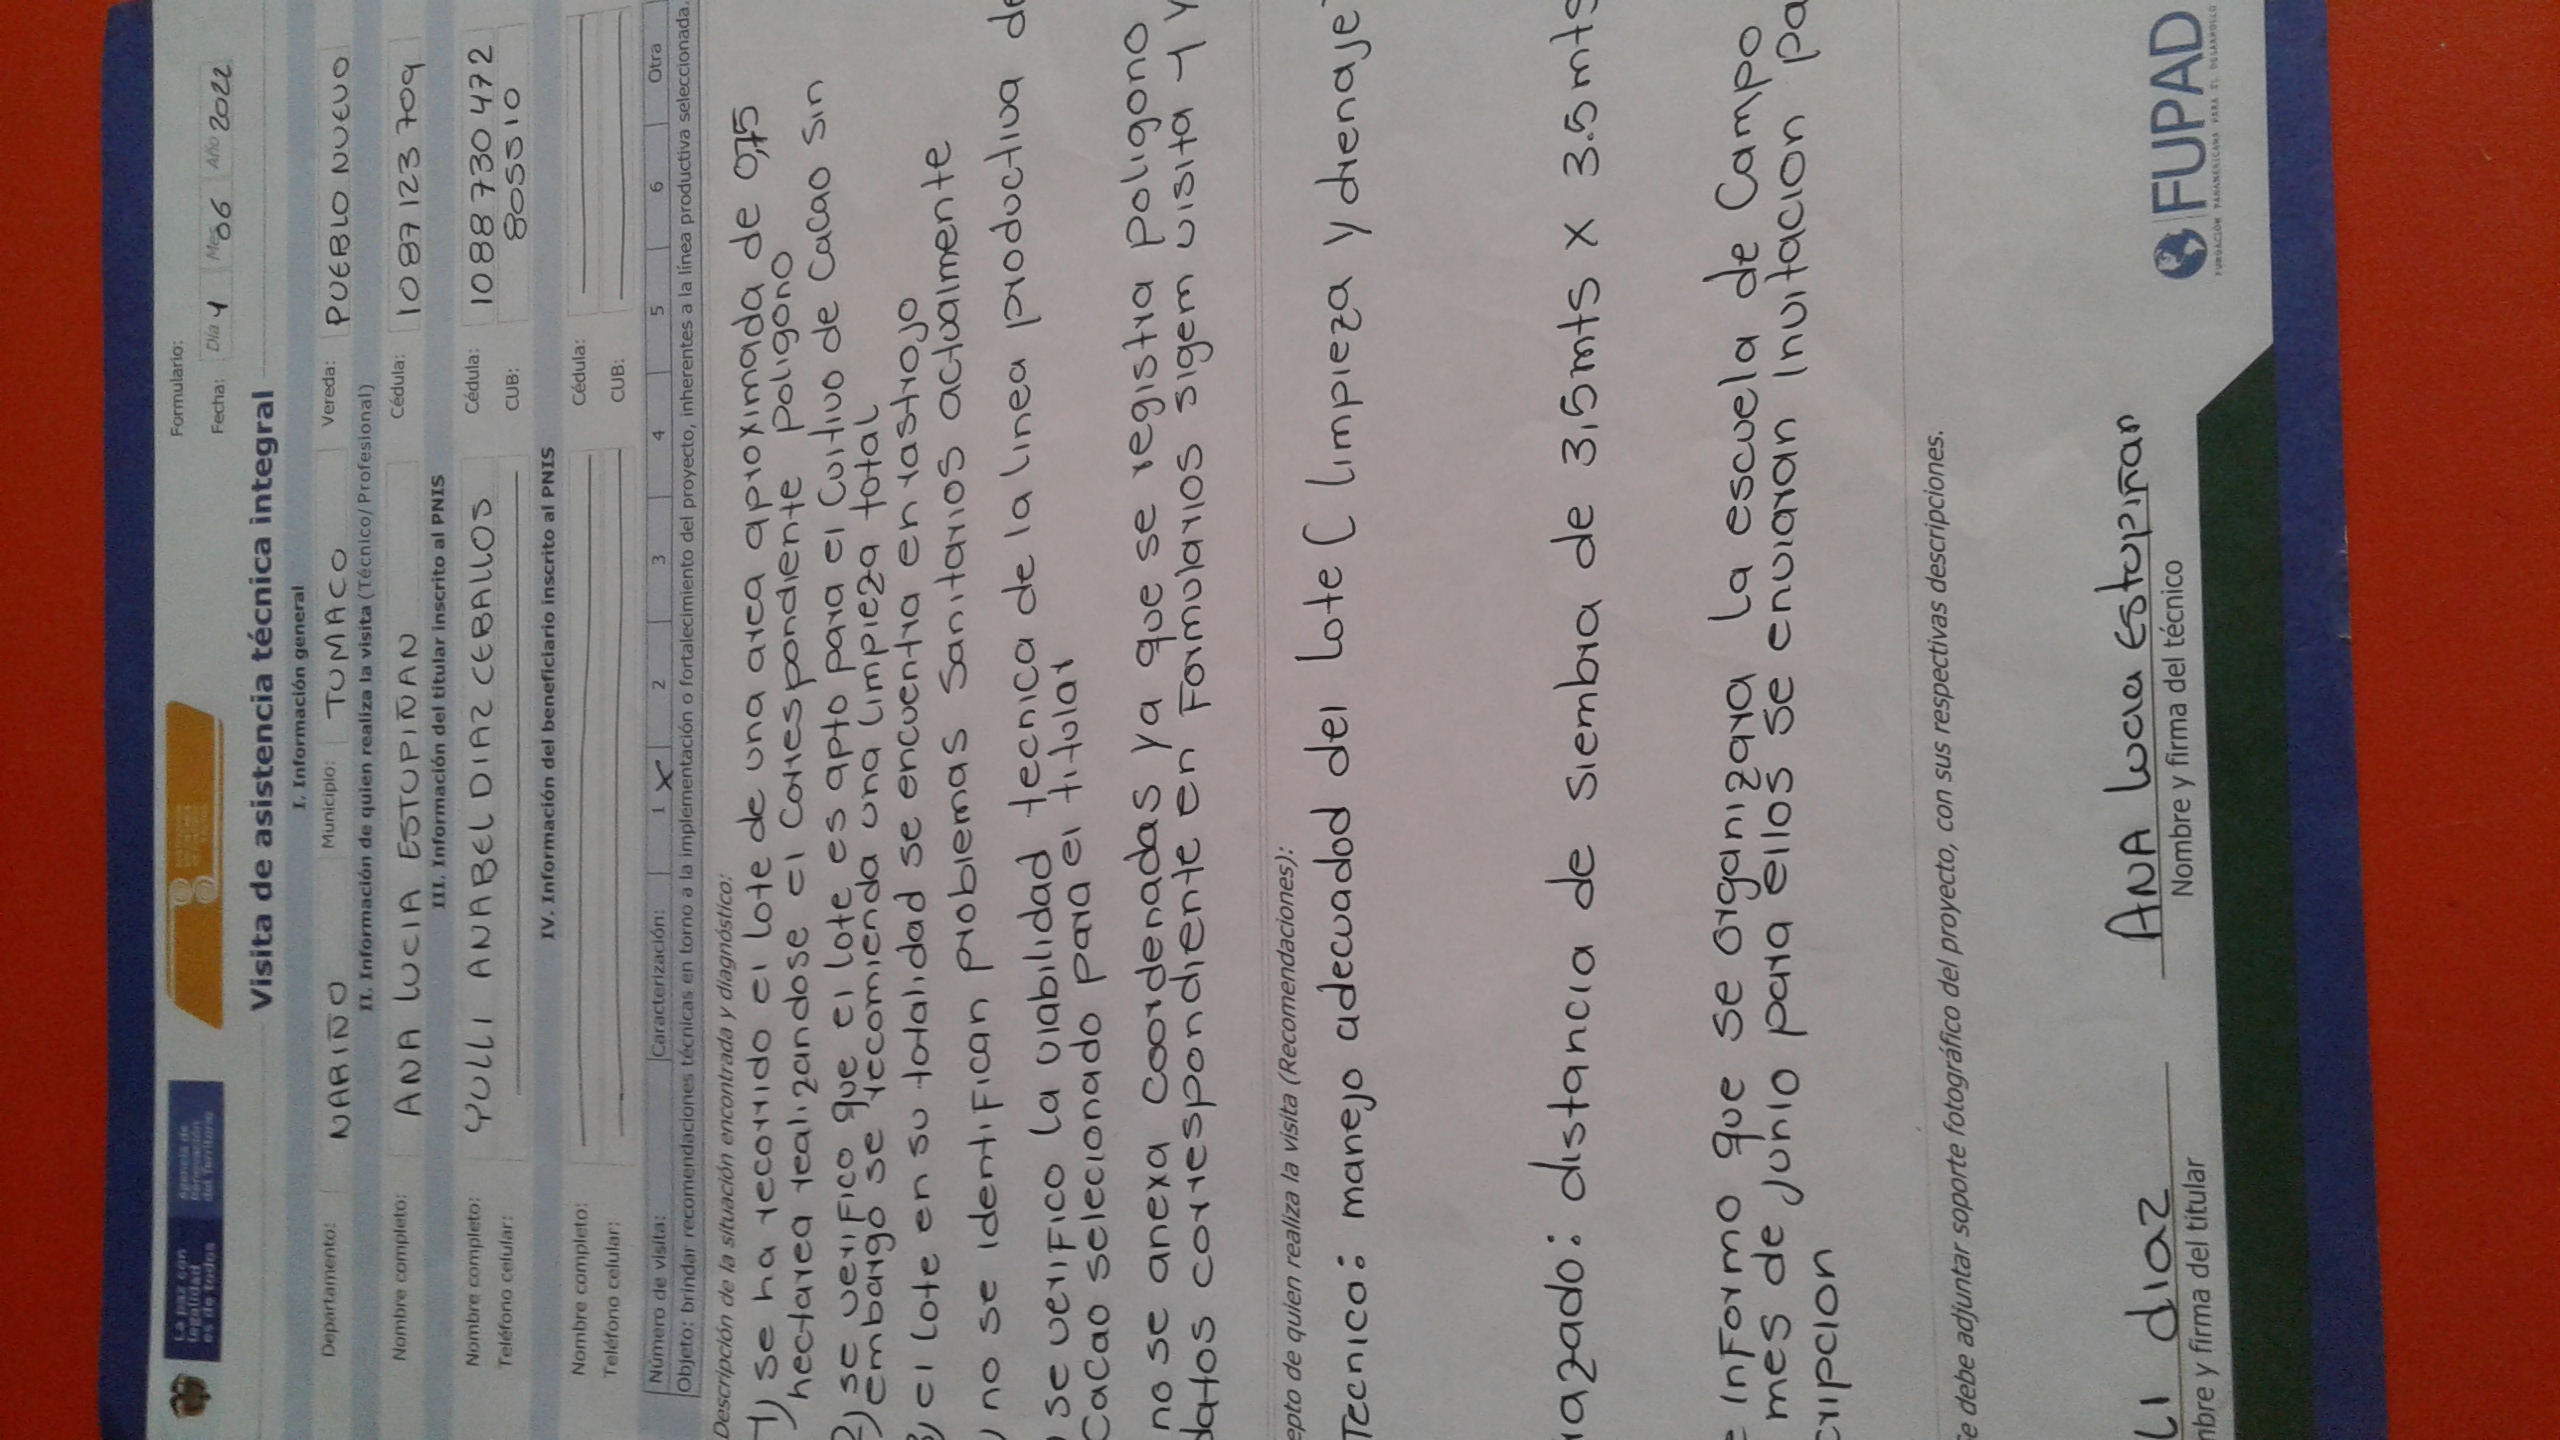 La paz con
legalidad
es de todos
Agencia de
Renovación
del Territorio
Formulario:
Fecha: Día 4 Mes 06 Año 2022
Visita de asistencia técnica integral
I. Información general
Departamento: NARIÑO Municipio: TUMACO Vereda: PUEBLO NUEVO
II. Información de quien realiza la visita (Técnico/ Profesional)
Nombre completo: ANA LUCIA ESTUPIÑAN Cédula: 1087 123 709
III. Información del titular inscrito al PNIS
Nombre completo: YULLI ANABEL DIAZ CEBALLOS Cédula: 1088 730 472
Teléfono celular: CUB: 805510
IV. Información del beneficiario inscrito al PNIS
Nombre completo: Cédula:
Teléfono celular: CUB:
Número de visita: Caracterización: 1 X 2 3 4 5 6 Otra
Objeto: brindar recomendaciones técnicas en torno a la implementación o fortalecimiento del proyecto, inherentes a la línea productiva seleccionada.
Descripción de la situación encontrada y diagnóstico:
1) se ha recorrido el lote de una area aproximada de 0,75
hectarea realizandose el correspondiente poligono
2) se verifico que el lote es apto para el cultivo de Cacao sin
embargo se recomienda una limpieza total
3) el lote en su totalidad se encuentra en rastrojo
) no se identifican problemas sanitarios actualmente
) se verifico la viabilidad tecnica de la linea productiva de
cacao selecionado para el titular
no se anexa coordenadas ya que se registra poligono
datos correspondiente en formularios sigem visita 1 y
epto de quien realiza la visita (Recomendaciones):
Tecnico: manejo adecuadod del lote ( limpieza y drenaje
razado: distancia de siembra de 3,5mts x 3.5mts
e informo que se organizara la escuela de campo
mes de junio para ellos se enviaran invitacion pa
cripcion
Se debe adjuntar soporte fotográfico del proyecto, con sus respectivas descripciones.
LI diaz
mbre y firma del titular
ANA Lucia Estupiñan
Nombre y firma del técnico
FUPAD
FUNDACIÓN PANAMERICANA PARA EL DESARROLLO